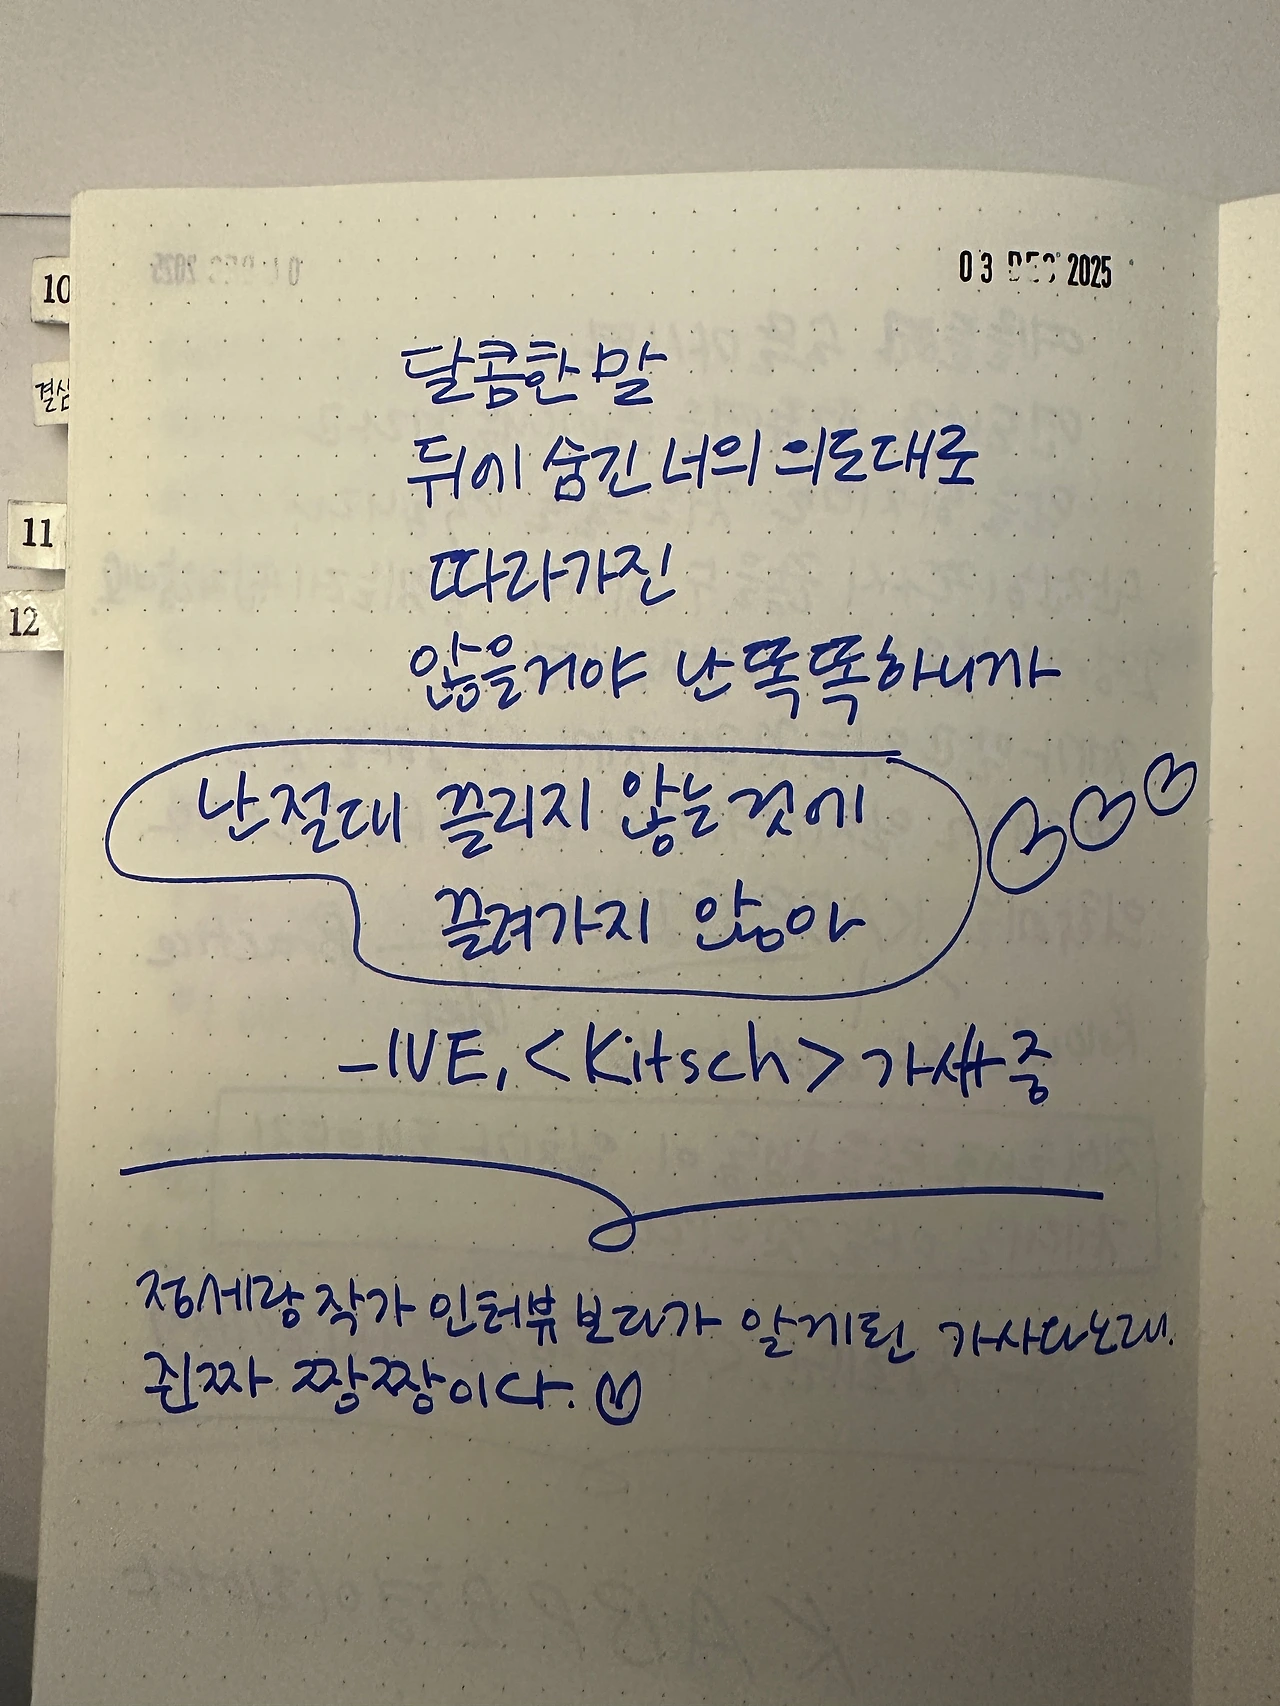 03 DEC 2025
10
결심
11
12
달콤한 말
뒤에 숨긴 너의 의도대로
따라가진
않을거야 난 똑똑하니까
난 절대 끌리지 않는 것에
끌려가지 않아
-IVE, <Kitsch> 가사 중
정세랑 작가 인터뷰 보다가 알게된 가사다노래.
진짜 짱짱이다.